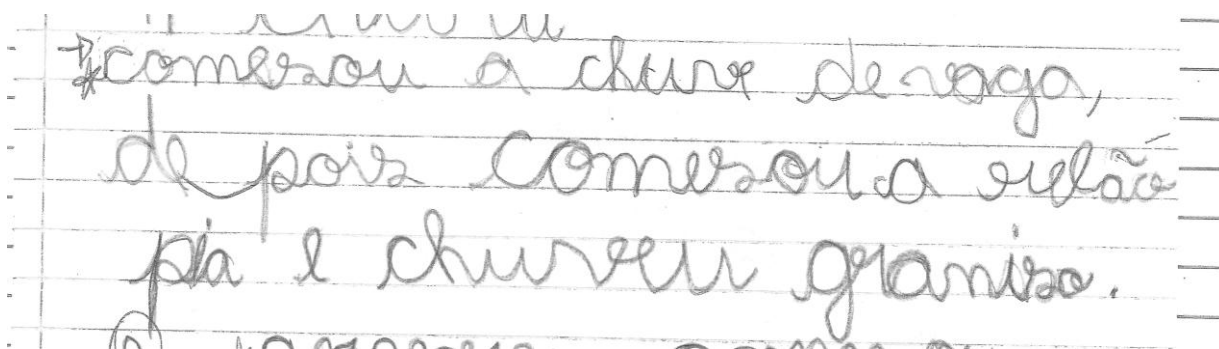 comesou a chuve de vaga,
de pois comesou a relão
pia e chuveu graniso.